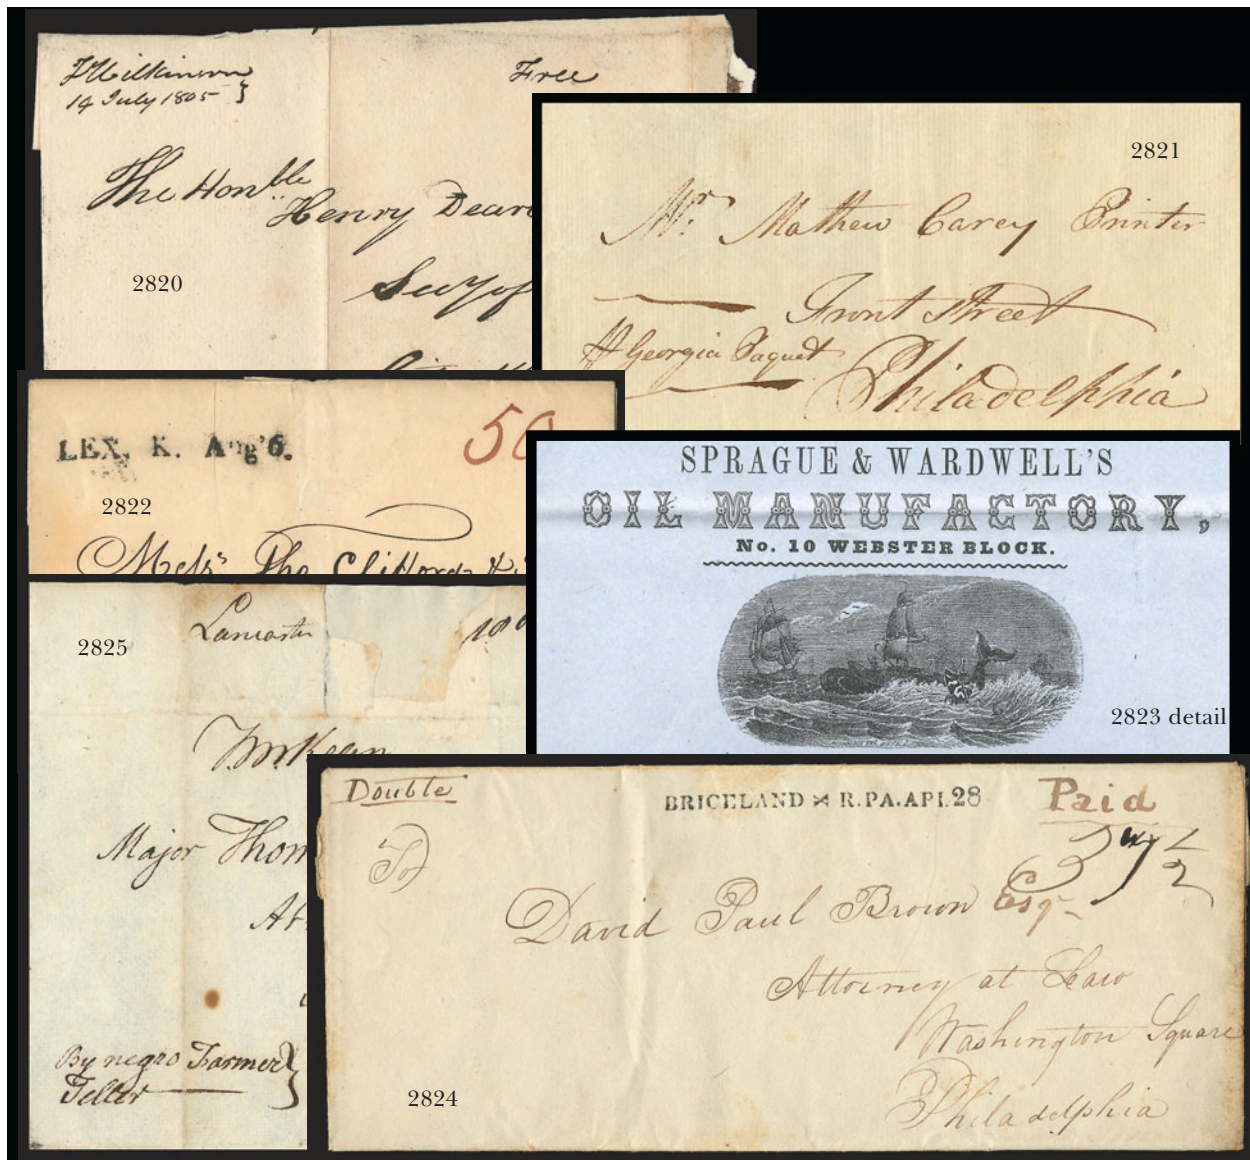 JWilkinson
14 July 1805
Free
The Honble
Henry Dear
2820
2821
Mr. Mathew Carey Printer
Front Street
Georgia Paquet
Philadelphia
LEX. K. Aug'6.
50
2822
Mess
SPRAGUE & WARDWELL'S
OIL MANUFACTORY,
No. 10 WEBSTER BLOCK.
2823 detail
Lancaster
2825
McKean
Major Thom
By negro Farmer
Teller
Double
BRICELAND ⋈ R.PA.APL.28
Paid
To
David Paul Brown Esqr
Attorney at Law
Washington Square
Philadelphia
2824